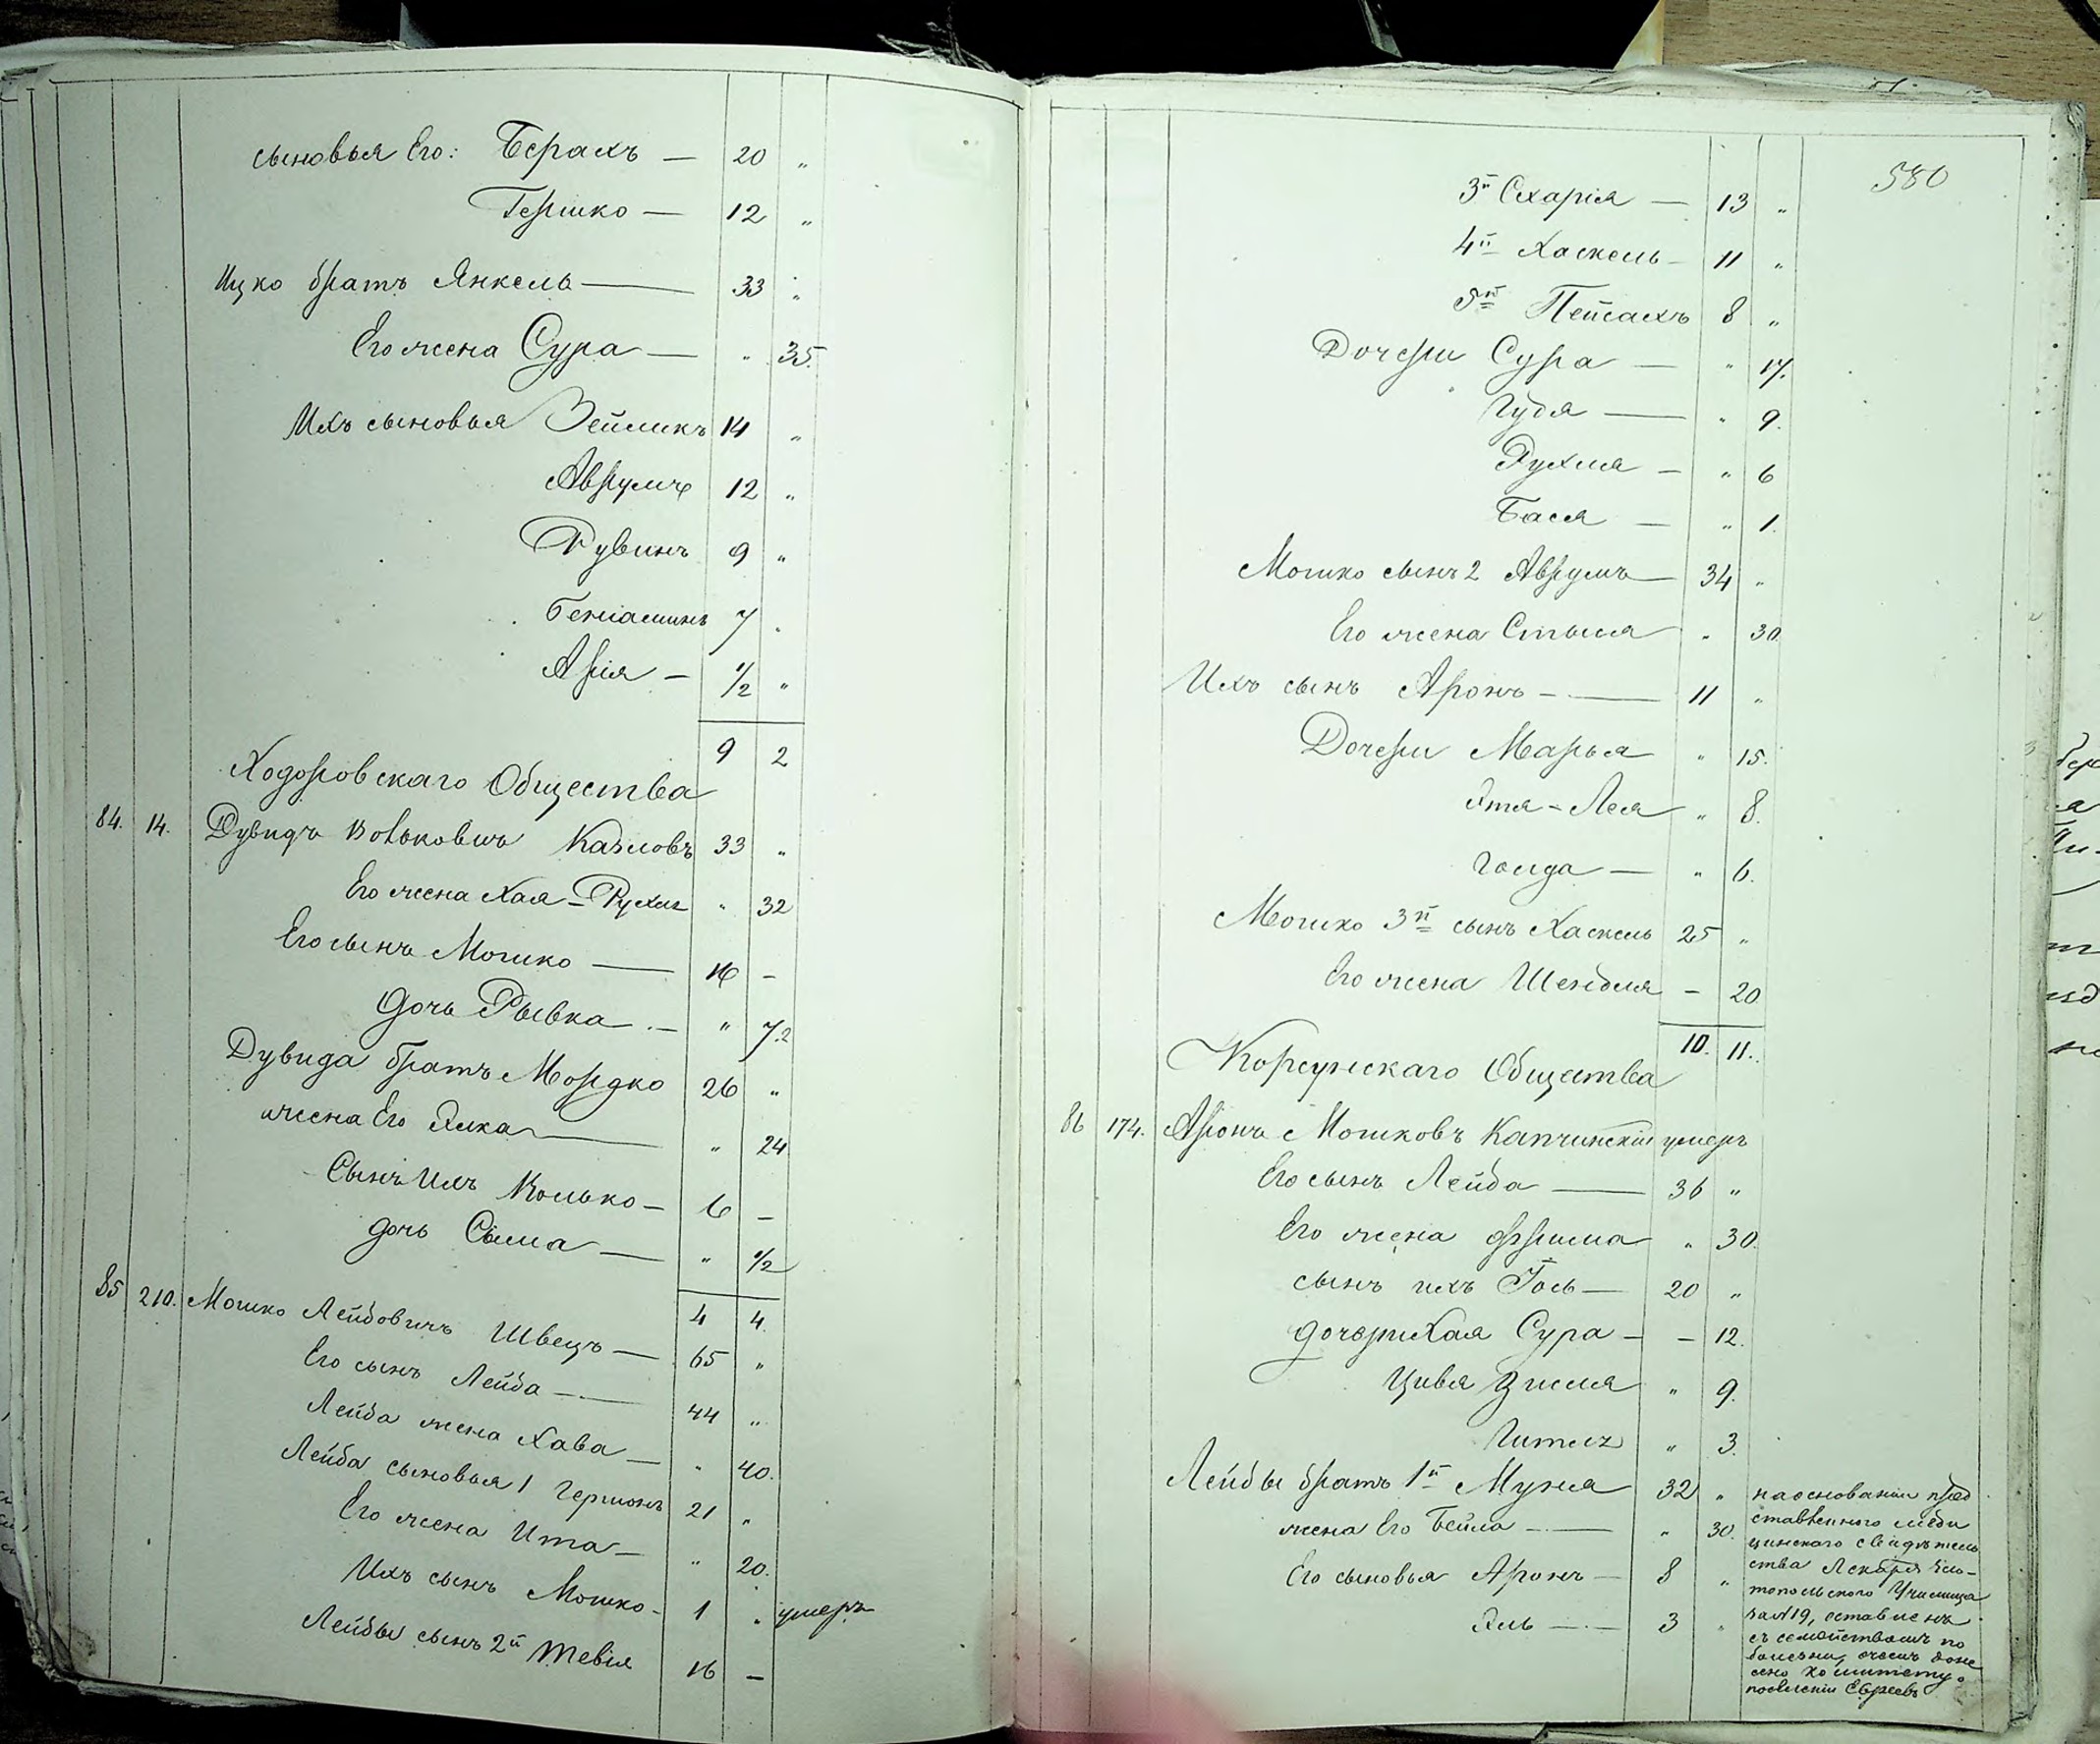 сыновья Его: Берахъ — 20 „
Гершко — 12 „
Ицко братъ Янкель — 33 „
Его жена Сура — „ 35.
Ихъ сыновья Зейликъ 14 „
Аврумъ 12 „
Рувинъ 9 „
Беніаминъ 7 „
Арія — 1/2 „
9 2
Ходоровскаго Общества
84. 14. Дувидъ Вольковичъ Казловъ 33 „
Его жена Хая-Рухля „ 32
Его сынъ Мошко — 16 –
дочь Рывка — „ 7.
Дувида братъ Мордко 26 „
жена Его Элка — „ 24
Сынъ Ихъ Волько — 6 –
дочь Сіма — „ 1/2
4 4.
85 210. Мошко Лейбовичъ Швецъ — 65 „
Его сынъ Лейба — 44 „
Лейба жена Хава — „ 40.
Лейба сыновья 1 Гершонъ 21 „
Его жена Ита — „ 20.
Ихъ сынъ Мошко — 1 „ умеръ
Лейбы сынъ 2й Тевія 16 –
580
3й Схарія — 13 „
4й Хаскель — 11 „
5й Пейсахъ 8 „
Дочери Сура — „ 17.
Гудя — „ 9.
Рухля — „ 6
Бася — „ 1.
Мошко сынъ 2 Аврумъ — 34 „
Его жена Стыся „ 30.
Ихъ сынъ Аронъ — 11 „
Дочери Марья „ 15.
Этя-Лея „ 8.
Голда — „ 6.
Мошко 3й сынъ Хаскель 25 „
Его жена Шендля — 20
10. 11.
Корсунскаго Общества
86 174. Аронъ Мошковъ Капчинскій умеръ
Его сынъ Лейба — 36 „
Его жена Фрима „ 30.
сынъ ихъ Іось — 20 „
дочери Хая Сура — – 12.
Цивя Зисля „ 9.
Гитля „ 3.
Лейбы братъ 1й Муня 32 „
жена Его Бейла — „ 30.
Его сыновья Аронъ — 8 „
Эль — 3 „
на основаніи пред
ставленного меди
цинскаго свидѣтель
ства Лекаря
Училища
за №19, оставленъ
съ семействомъ по
болезни, о чемъ доне
сено Комитету о
поселеніи Евреевъ